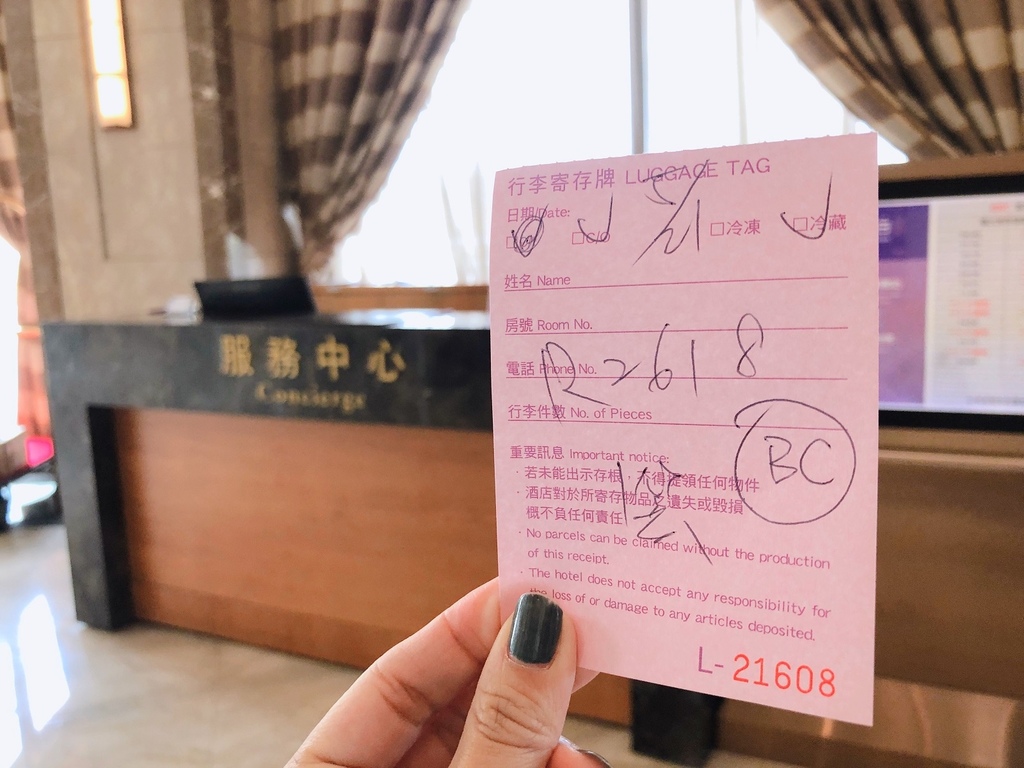 服務中心
Concierge
行李寄存牌 LUGGAGE TAG
日期/Date:
5/21
□C/O □冷凍 □冷藏
姓名 Name
房號 Room No.
R2618
電話 Phone No.
行李件數 No. of Pieces
BC
重要訊息 Important notice:
· 若未能出示存根,不得提領任何物件
· 酒店對於所寄存物品之遺失或毀損
概不負任何責任
· No parcels can be claimed without the production
of this receipt.
· The hotel does not accept any responsibility for
the loss of or damage to any articles deposited.
L- 21608